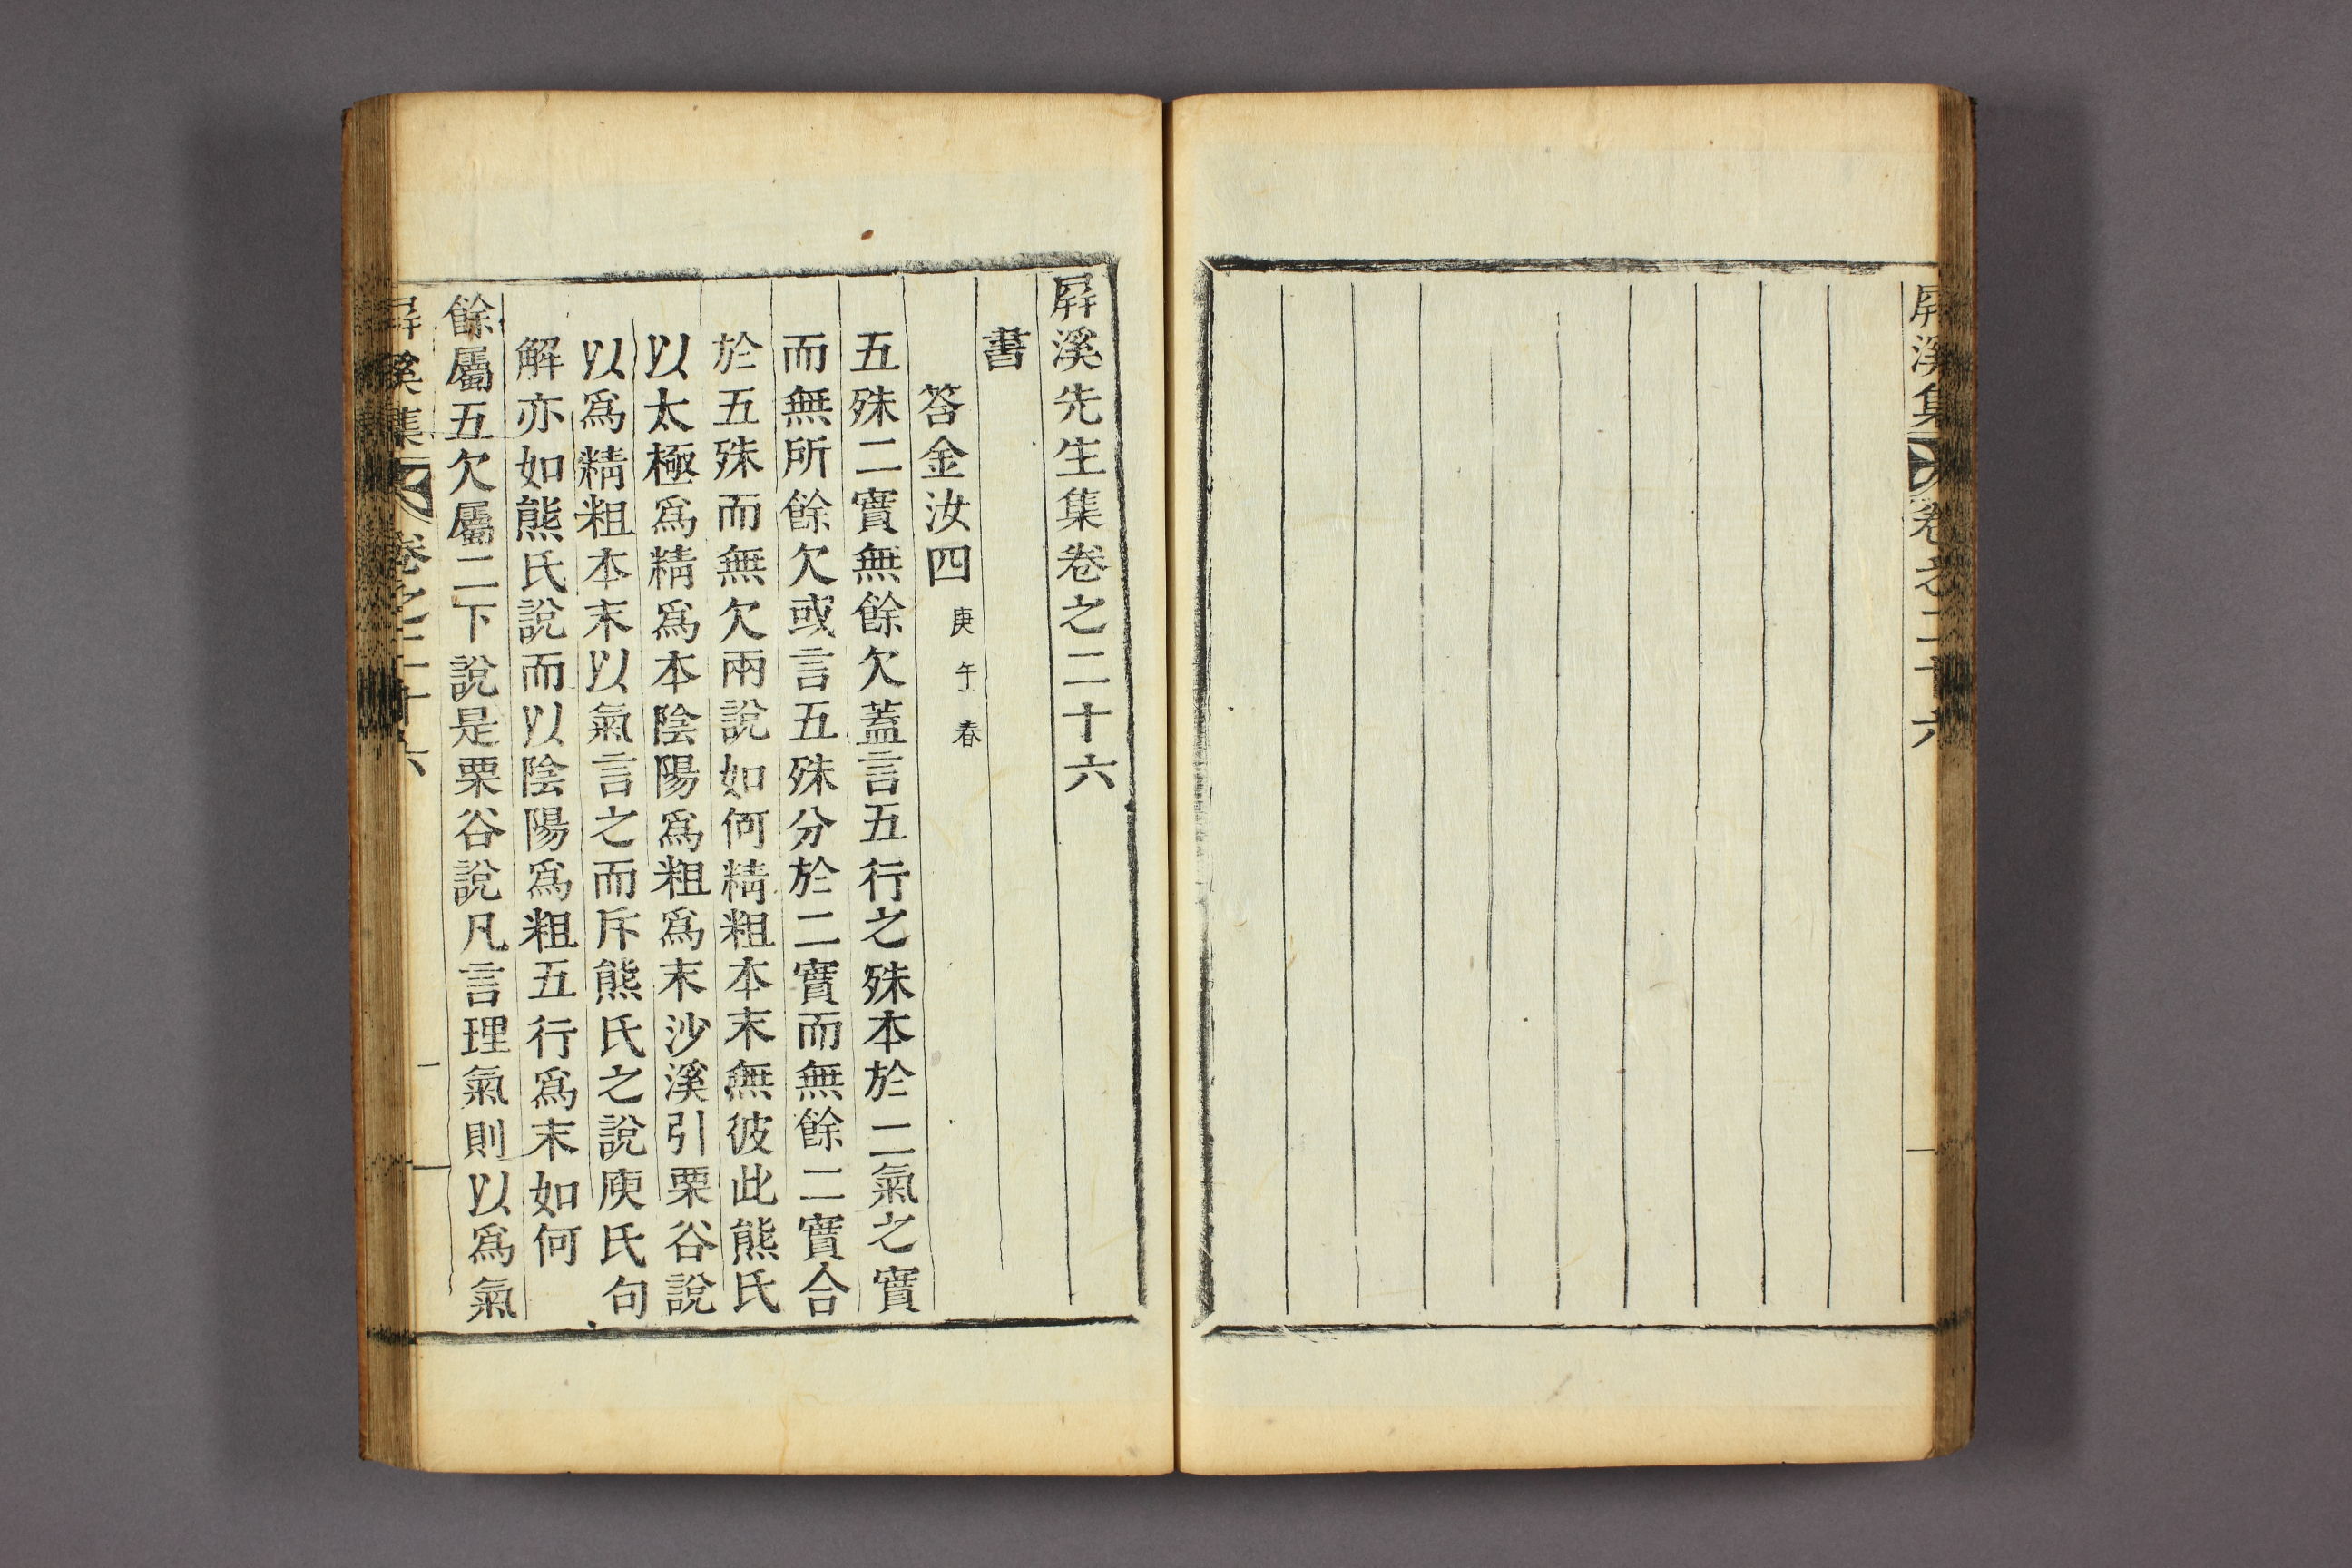 屛溪集 卷之二十六
屛溪先生集卷之二十六
書
答金汝四庚午春
五殊二實無餘欠蓋言五行之殊本於二氣之實
而無所餘欠或言五殊分於二實而無餘二實合
於五殊而無欠兩說如何精粗本末無彼此熊氏
以太極爲精爲本陰陽爲粗爲末沙溪引栗谷說
以爲精粗本末以氣言之而斥熊氏之說庾氏句
解亦如熊氏說而以陰陽爲粗五行爲末如何
餘屬五欠屬二下說是栗谷說凡言理氣則以爲氣
屛溪集 卷之二十六 一